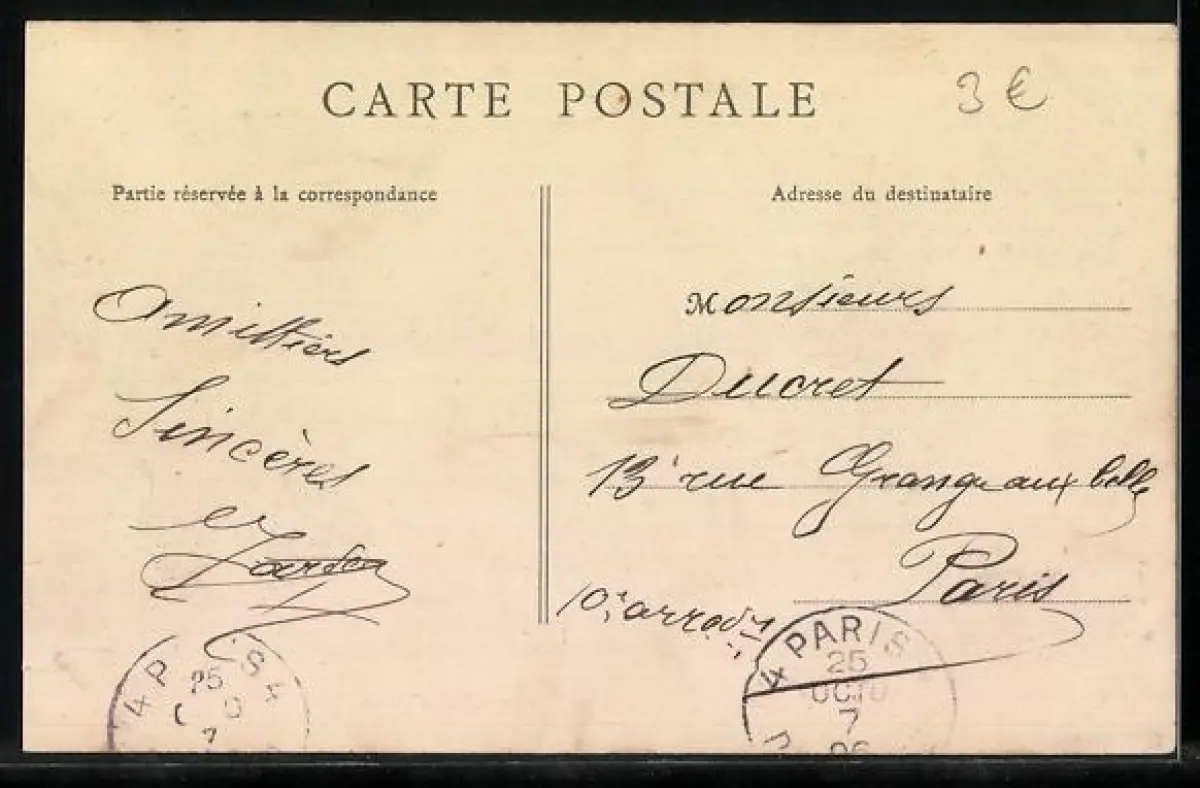 CARTE POSTALE
3 €
Partie réservée à la correspondance
Amittiers
Sincères
Adresse du destinataire
Monsieurs
Ducret
13 rue Grange aux belle
Paris
10e arrod
4 PARIS 4
25
7
4 PARIS
25
OCTO
7
06